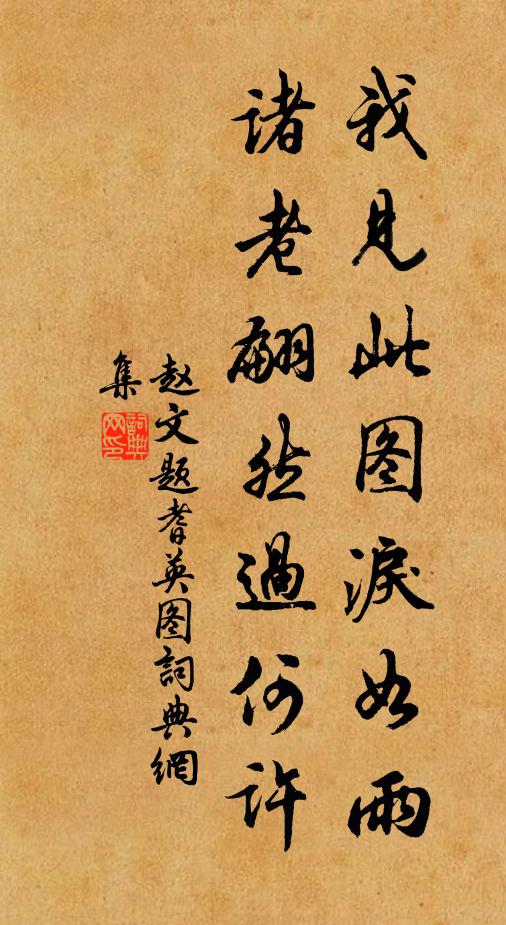 我见此图淚如雨
诸老翩然過何许
赵文题耆英图词典網
集
詞典网印